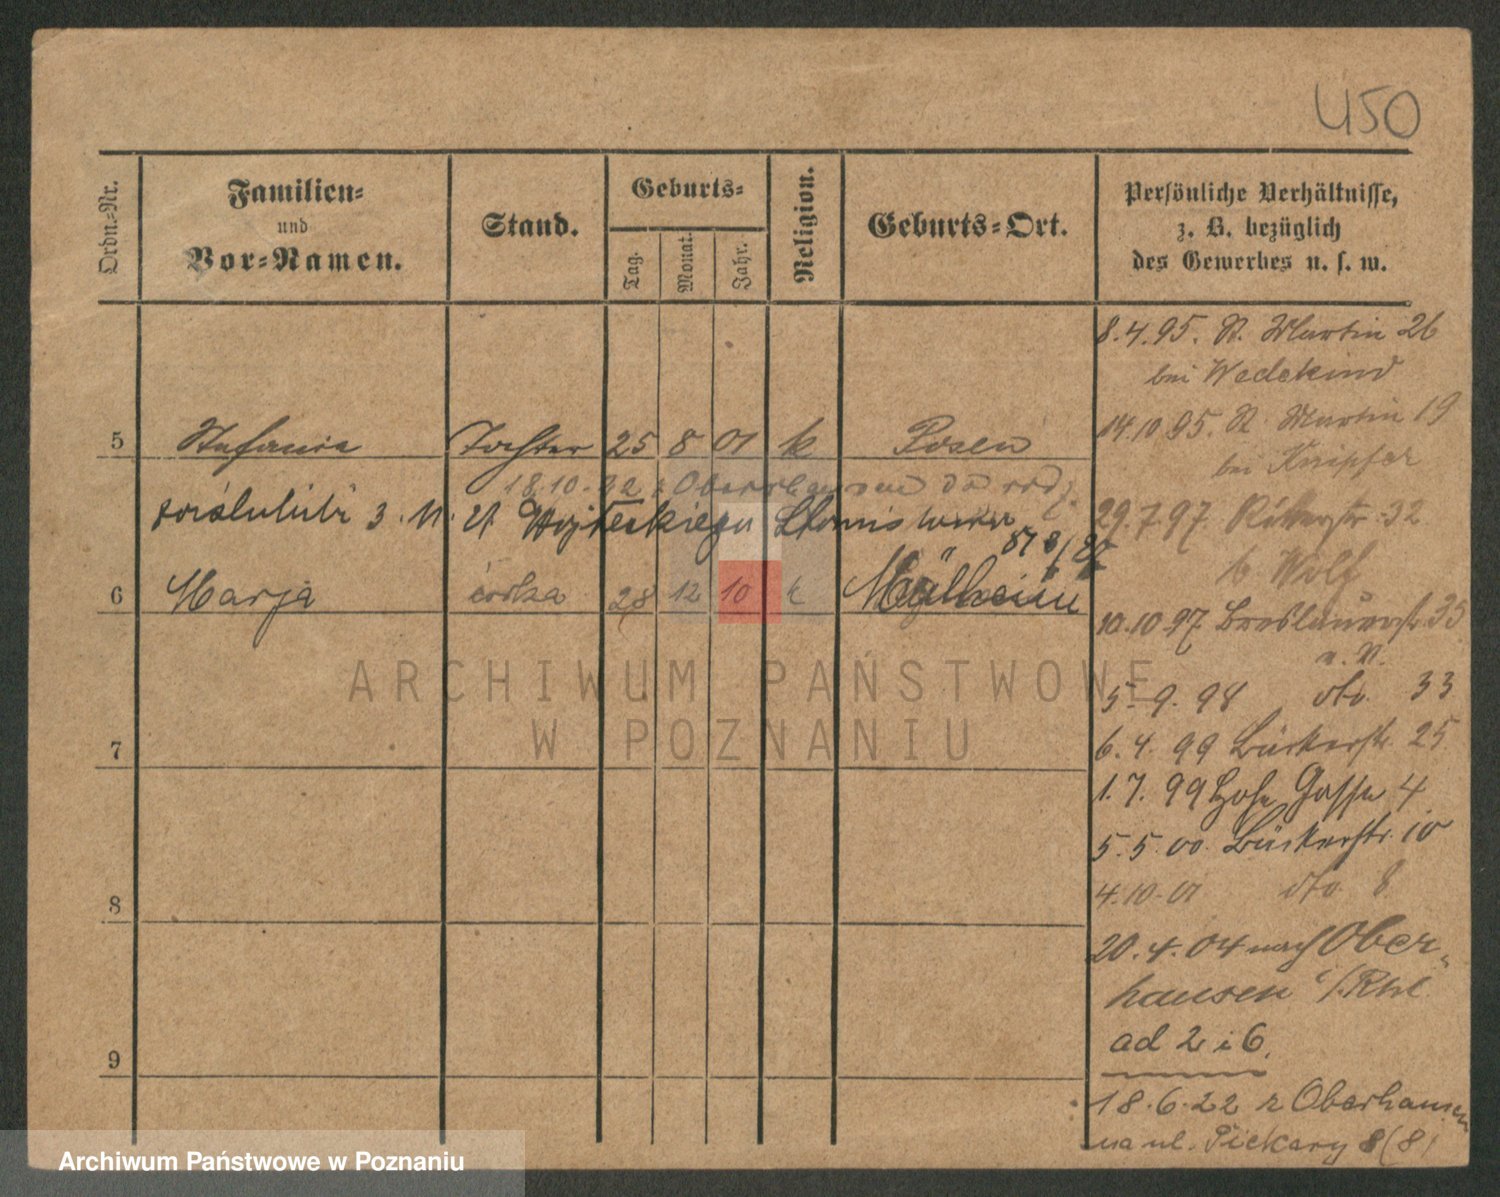 450
Ordn.-Nr.
Familien-
und
Vor-Namen.
Stand.
Geburts-
Tag.
Monat.
Jahr.
Religion.
Geburts-Ort.
Persönliche Verhältnisse,
z. B. bezüglich
des Gewerbes u. s. w.
5 Stefanie Tochter 25 8 01 k Posen
18.10.22 z Oberhausen do rodz.
zaślubiła 3. 21 Wojteckiego Stanisława
6 Marja córka 28 12 10 k Mülheim
7
8
9
8.4.95. St. Martin 26
bei Wedekind
14.10.95. St. Martin 19
bei Knipfer
29.7.97. Ritterstr. 32
b. Wolf
10.10.97 Breslauerstr. 35
5.9.98 dto. 33
6.4.99 Bäckerstr. 25
1.7.99 Hohe Gasse 4
5.5.00. Bäckerstr. 10
4.10.01 dto 8
20.4.04 nach Ober-
hausen i/Rhl.
ad 2 i 6.
18.6.22 z Oberhausen
na ul. Piekary 8
ARCHIWUM PAŃSTWOWE
W POZNANIU
Archiwum Państwowe w Poznaniu